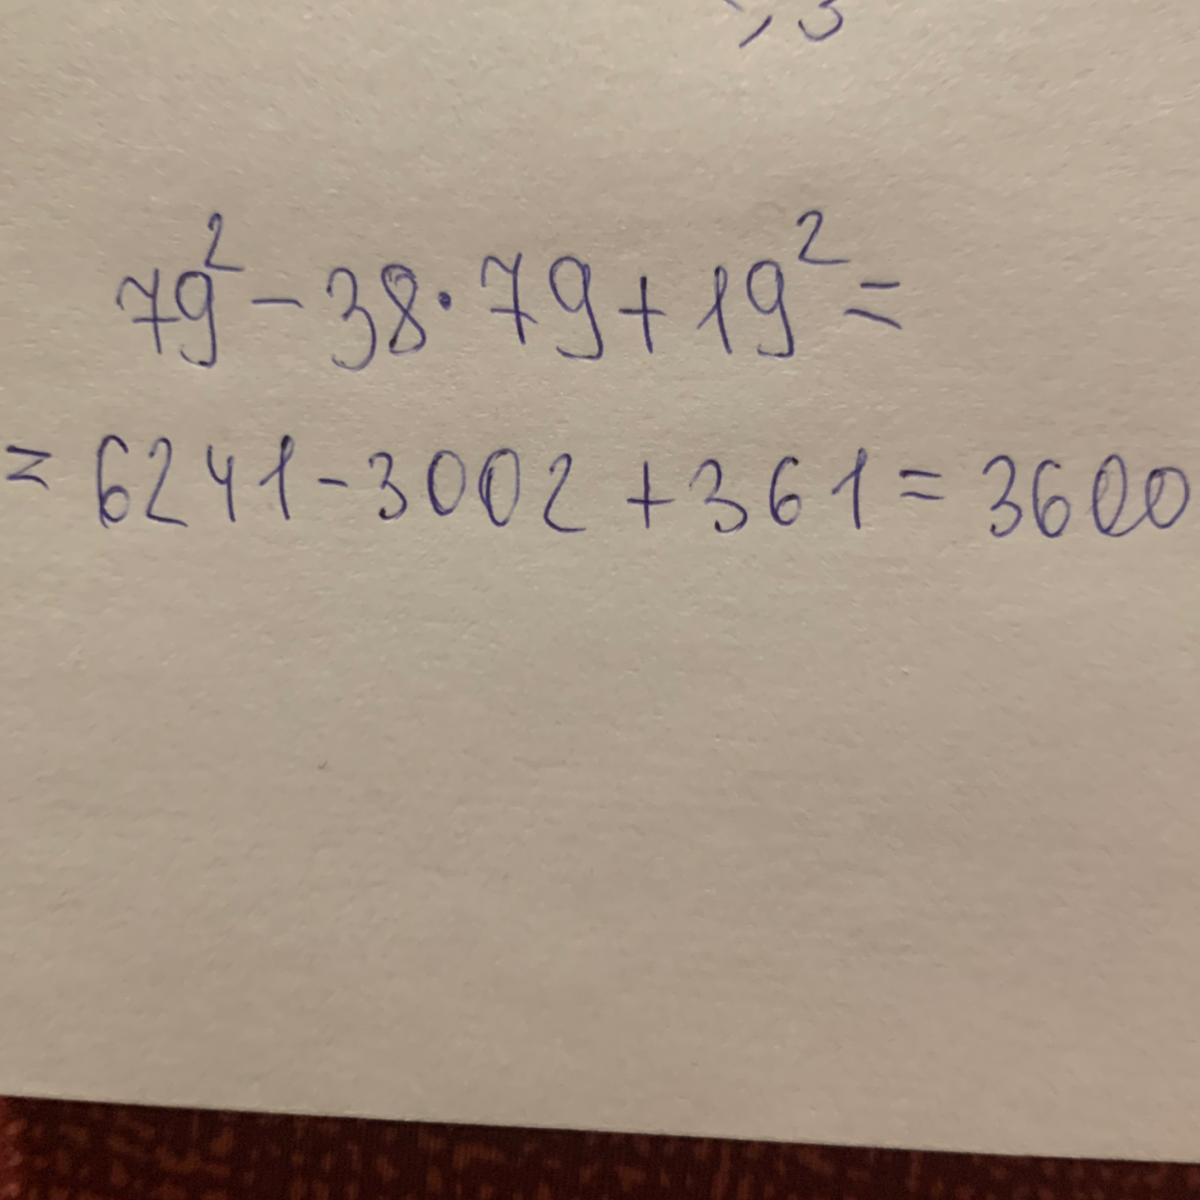 79² - 38 · 79 + 19² =
= 6241 - 3002 + 361 = 3600